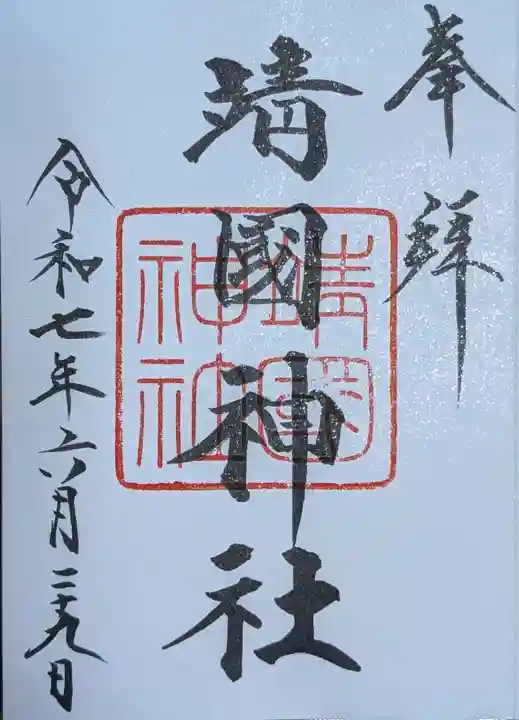 奉拝
靖國神社
靖國神社
令和七年六月二十九日